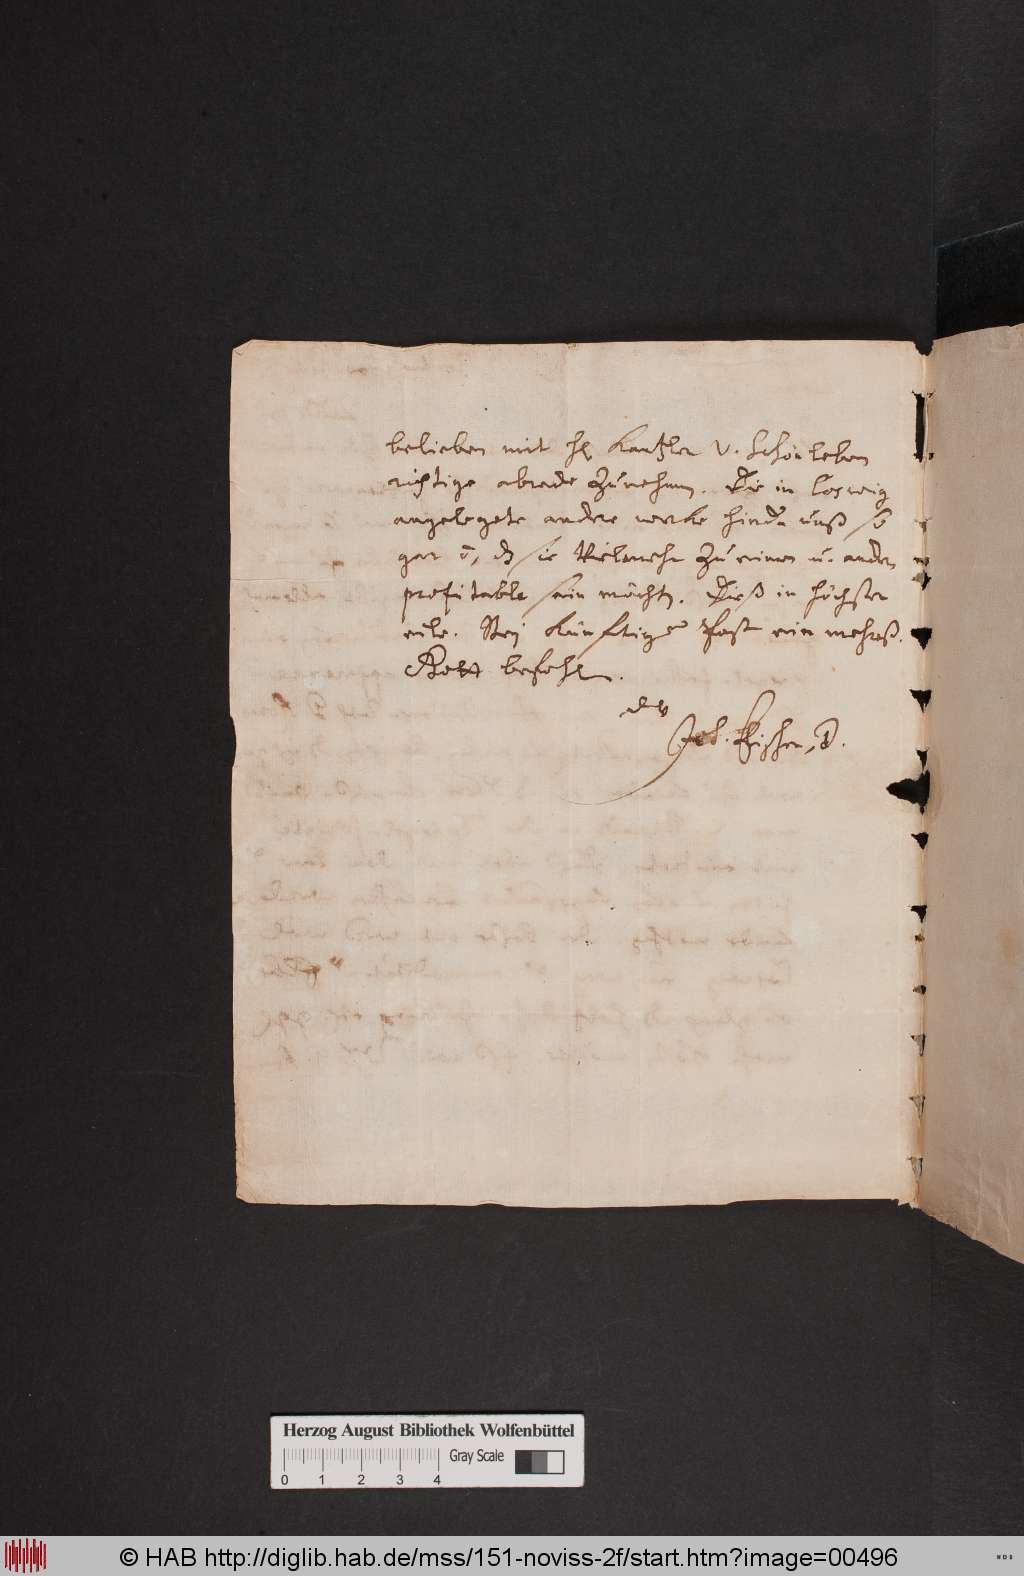 belieben mit H. Kantzler v. Schönleben
richtige abrede zunehmen. Die in Coswig
angelegete andere werke hindern unß so
gar nicht, dß sie Vielmehr zu einem u. andern
profitable sein möchten. Dieß in höchster
eile. Bey künftiger Post ein mehreß.
Gott befohlen.
Joh. Fischer, D.
Herzog August Bibliothek Wolfenbüttel
0 1 2 3 4 Gray Scale
© HAB http://diglib.hab.de/mss/151-noviss-2f/start.htm?image=00496